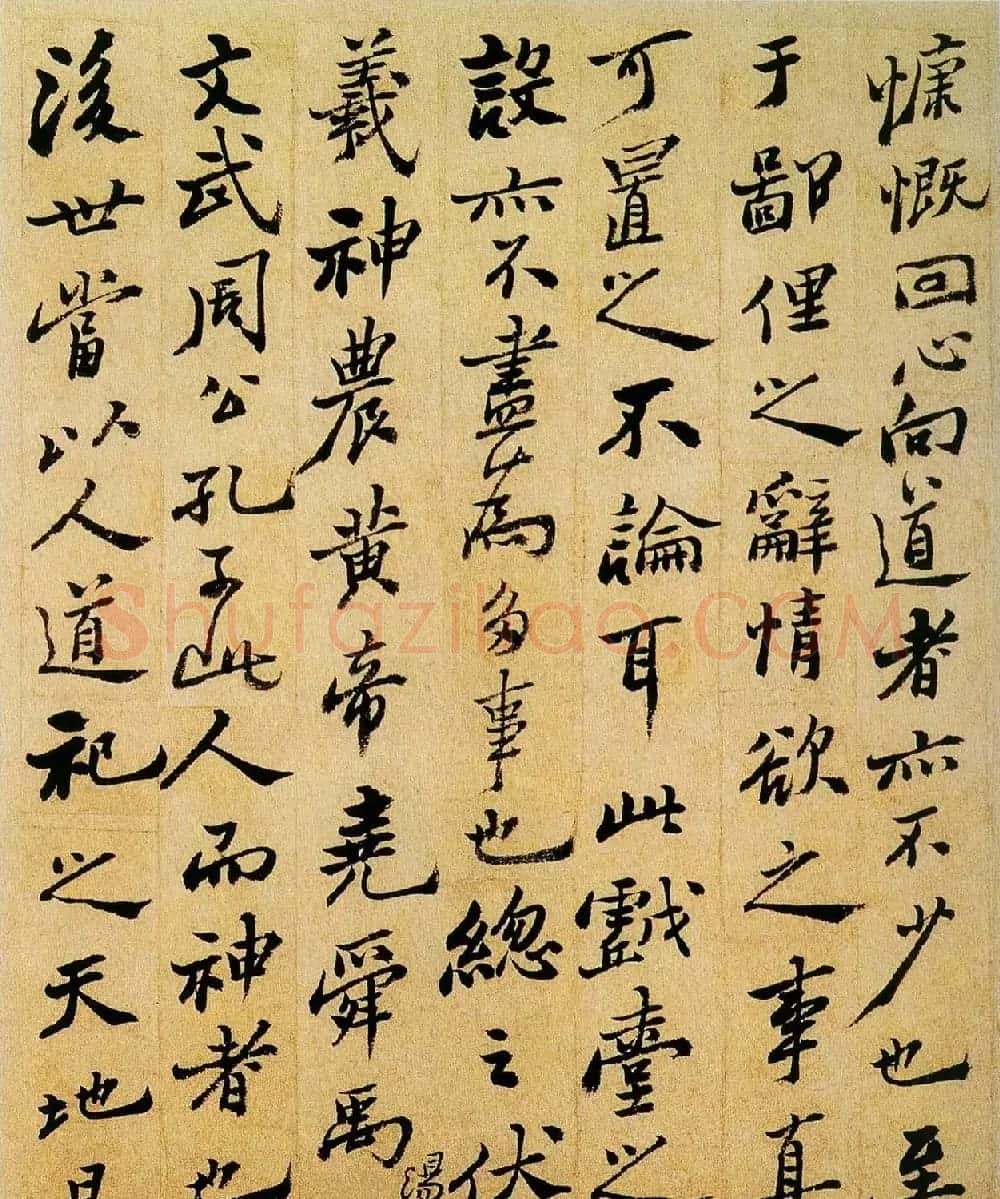 慷慨回心向道者亦不少也至
于鄙俚之辭情欲之事直
可置之不論耳此戲臺之
設亦不盡為多事也總之伏
羲神農黃帝堯舜禹
湯
文武周公孔子此人而神者也
後世當以人道祀之天地日
Shufazihao.COM